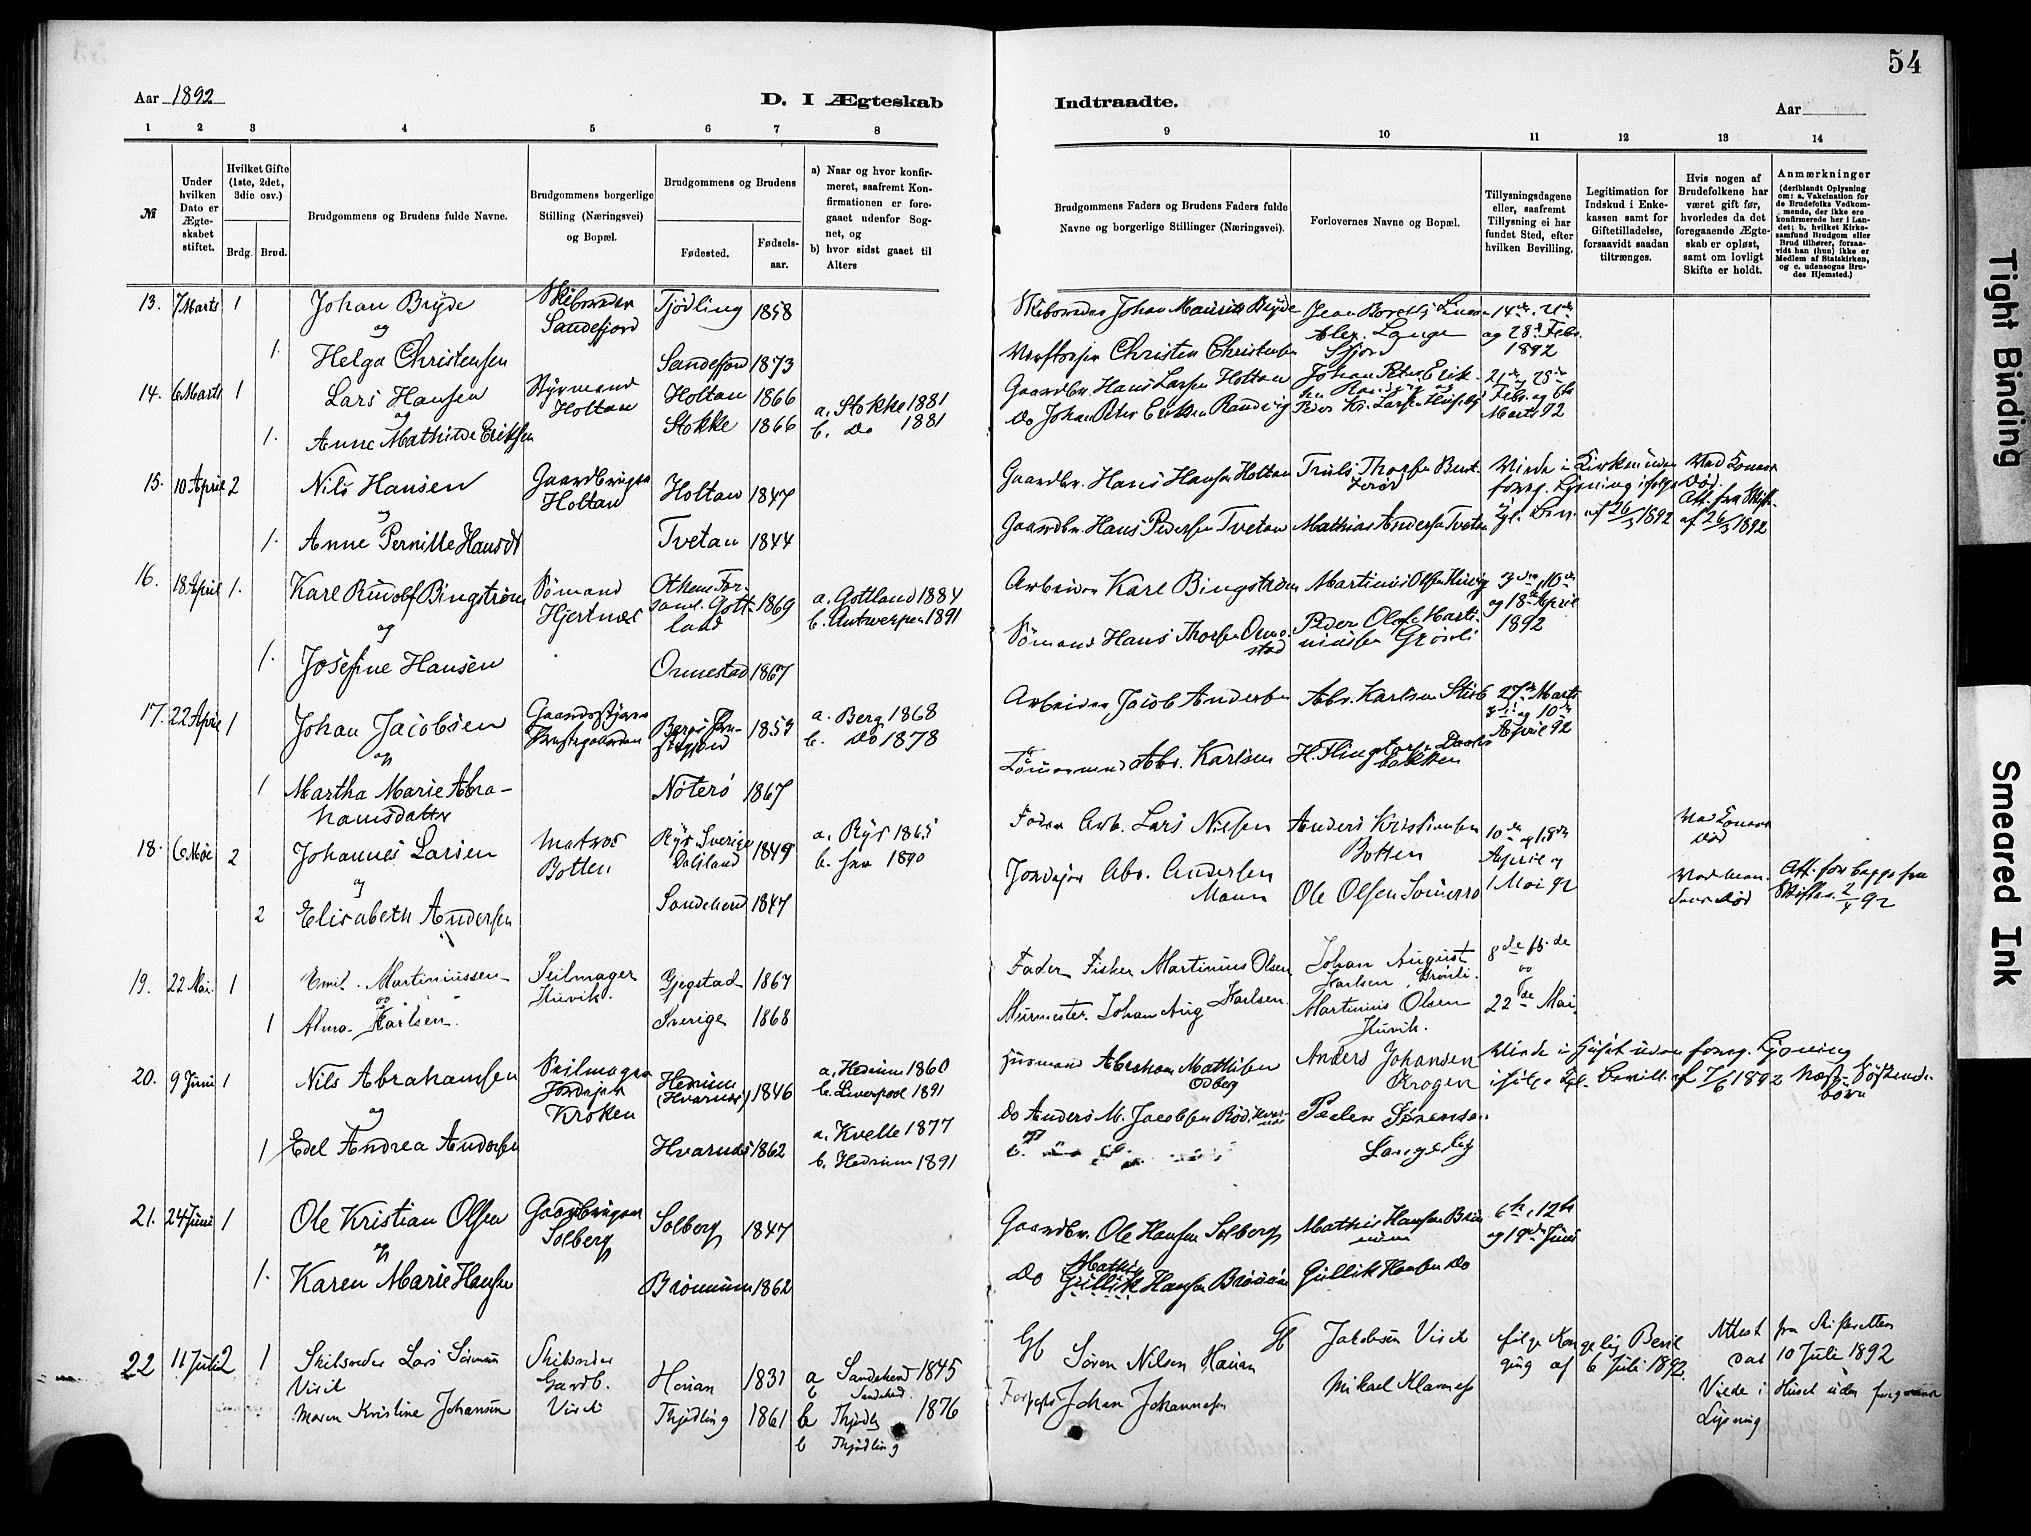 54
Aar 1892
D. I Ægteskab
Indtraadte.
Aar
1 2 3 4 5 6 7 8
9 10 11 12 13 14
№
Under hvilken Dato er Ægteskabet stiftet.
Hvilket Gifte (1ste, 2det, 3die osv.)
Brdg. Brud.
Brudgommens og Brudens fulde Navne.
Brudgommens borgerlige Stilling (Næringsvei) og Bopæl.
Brudgommens og Brudens
Fødested. Fødselsaar.
a) Naar og hvor konfirmeret, saafremt Konfirmationen er foregaaet udenfor Sognet, og
b) hvor sidst gaaet til Alters
Brudgommens Faders og Brudens Faders fulde Navne og borgerlige Stillinger (Næringsvei).
Forlovernes Navne og Bopæl.
Tillysningsdagene eller, saafremt Tillysning ei har fundet Sted, efter hvilken Bevilling.
Legitimation for Indskud i Enkekassen samt for Giftetilladelse, forsaavidt saadan tiltrænges.
Hvis nogen af Brudefolkene har været gift før, hvorledes da det foregaaende Ægteskab er opløst, samt om lovligt Skifte er holdt.
Anmærkninger
(deriblandt Oplysning om: a. Vakcination for de Brudefolks Vedkommende, der ikke ere konfirmerede her i Landet; b. hvilket Kirkesamfund Brudgom eller Brud tilhører, forsaavidt han (hun) ikke er Medlem af Statskirken, og c. udensogns Brudes Hjemsted.)
13. 7 Marts 1 Johan Bryde Skibsreder Sandefjord Tjødling 1858
Skibsreder Johan Mauritz Bryde
14de, 21de og 28de Febr. 1892
og
1. Helga Christensen Sandefjord 1873
Christen Christensen
Alex. Lange
14. 6 Marts 1 Lars Hansen Styrmand Holtan Holtan 1866
Gaardbr. Hans Larsen Holtan
Johan Peter Erik-
21de og 28de Febr. og 6te Marts 92
og
1. Anne Mathilde Eriksen Stokke 1866
a. Stokke 1881
b. Do 1881
Do Johan Peter Eriksen Randvig
Peder Kr. Larsen
15. 10 April 2 Nils Hansen Gaardbruger Holtan Holtan 1847
Gaardbr. Hans Hansen Holtan
Truls Thorsen
Viede i Kirken uden foreg. Lysning ifølge Kgl. Bev. af 26/3 1892
Ved Konens Død. Att. fra Skift. af 26/3 1892
og
1. Anne Pernille Hansdt Tvetan 1844
Gaardbr. Hans Pedersen Tvetan
Mathias Andersen Tvetan
16. 18 April 1. Karl Rudolf Bingstrøm Sømand Hjertnes
Gottland 1869
a. Gottland 1884
b. Antwerpen 1891
Arbeider Karl Bingstrøm
Martinius Olsen Huvig
3die, 10de og 18de April 1892
og
1. Josefine Hansen Ormestad 1867
Sømand Hans Thorsen Ormestad
Peder Olsen
17. 22 April 1 Johan Jacobsen
a. Berg 1868
b. Do 1878
Arbeider Jacob Andersen
Abr. Karlsen
27de Marts 3die og 10de April 92
og
1 Martha Marie Abrahamsdatter Nøterø 1867
Tømmermand Abr. Karlsen
18. 6 Mai 2 Johannes Larsen Matros Botten
Ryr Sverige Dalsland 1849
a. Ryr 1865
b. her 1890
Fader Arb. Lars Nilsen
Anders Kristiansen Botten
10de og 18de April og 1 Mai 92
Ved Konens Død
og
2 Elisabeth Andersen Sandeherd 1847
Jordejer Abr. Andersen
Ole Olsen
Ved Mandens Død
Att. for begge fra Skiften 2/4 92
19. 22 Mai. 1 Emil. Martiniussen Seilmager Huvik. Gjegstad 1867
Fader Fisker Martinius Olsen
Johan August Karlsen, Grønli.
8de 15.de og 22de Mai.
og
1 Alma Karlsen. Sverige 1868
Murmester. Johan Aug Karlsen.
Martinius Olsen Huvik.
20. 9 Juni 1 Nils Abrahamsen Seilmager Jordejer Kroken
Hedrum (Hvarnes) 1846
a. Hedrum 1860
b. Liverpool 1891
Husmand Abraham Mathisen Odberg
Anders Johansen Krogen
Viede i Huset uden foreg. Lysning ifølge Kgl. Bevill. af 7/6 1892
Næstsøskendebørn
og
1 Edel Andrea Andersen Hvarnes 1862
a. Kvelle 1877
b. Hedrum 1891
Do Anders M. Jacobsen Rød
Langeby
21. 24 Juni 1 Ole Kristian Olsen Gaardbruger Solberg Solberg 1847
Gaardbr. Ole Hansen Solberg
Mathis Hansen
5te, 12te og 19de Juni
og
1. Karen Marie Hansen 1862
Do Mathis Gullik Hansen
Gullik Hansen Do
22 11 Juli 2 1 Skibsreder Lars Sørensen Virik
Skibsreder Gardb. Virik
Hauan 1831
a Sandeherd 1845
b Sandeherd.
Gb Søren Nilsen Hauan
Gb Jakobsen Virik
ifølge Kongelig Bevilging af 6 Juli 1892.
Attest fra Skifteretten dat 10 Juli 1892
Maren Kristine Johansen Thjødling 1861
b Thjødling 1876
b Thjødling
Johan Johannesen
Mikael Klavness
Viede i Huset uden foregaaende Lysning
Tight Binding
Smeared Ink